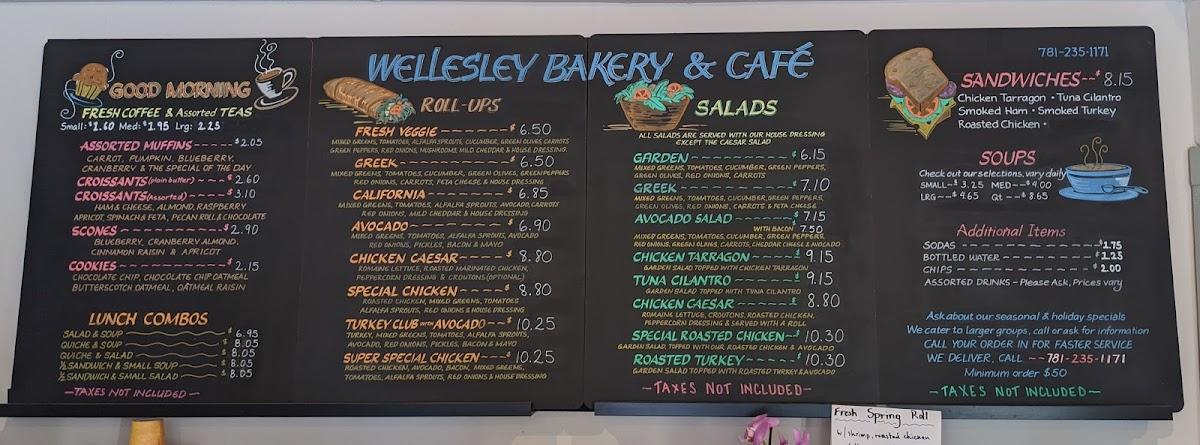 WELLESLEY BAKERY & CAFÉ
GOOD MORNING
FRESH COFFEE & Assorted TEAS
Small: $1.60 Med: $1.95 Lrg: 2.25
ASSORTED MUFFINS $2.05
CARROT, PUMPKIN, BLUEBERRY,
CRANBERRY & THE SPECIAL OF THE DAY
CROISSANTS (plain butter) $2.60
CROISSANTS (assorted) $3.10
HAM & CHEESE, ALMOND, RASPBERRY
APRICOT, SPINACH & FETA, PECAN ROLL & CHOCOLATE
SCONES $2.90
BLUEBERRY, CRANBERRY ALMOND,
CINNAMON RAISIN & APRICOT
COOKIES $2.15
CHOCOLATE CHIP, CHOCOLATE CHIP OATMEAL
BUTTERSCOTCH OATMEAL, OATMEAL RAISIN
LUNCH COMBOS
SALAD & SOUP $6.95
QUICHE & SOUP $8.05
QUICHE & SALAD $8.05
½ SANDWICH & SMALL SOUP $8.05
½ SANDWICH & SMALL SALAD $8.05
—TAXES NOT INCLUDED—
ROLL-UPS
FRESH VEGGIE $6.50
MIXED GREENS, TOMATOES, ALFALFA SPROUTS, CUCUMBER, GREEN OLIVES, CARROTS
GREEN PEPPERS, RED ONIONS, MUSHROOMS, MILD CHEDDAR & HOUSE DRESSING.
GREEK $6.50
MIXED GREENS, TOMATOES, CUCUMBER, GREEN OLIVES, GREEN PEPPERS
RED ONIONS, CARROTS, FETA CHEESE & HOUSE DRESSING
CALIFORNIA $6.85
MIXED GREENS, TOMATOES, ALFALFA SPROUTS, AVOCADO, CARROTS
RED ONIONS, MILD CHEDDAR & HOUSE DRESSING
AVOCADO $6.90
MIXED GREENS, TOMATOES, ALFALFA SPROUTS, AVOCADO
RED ONIONS, PICKLES, BACON & MAYO
CHICKEN CAESAR $8.80
ROMAINE LETTUCE, ROASTED MARINATED CHICKEN,
PEPPERCORN DRESSING & CROUTONS (OPTIONAL)
SPECIAL CHICKEN $8.80
ROASTED CHICKEN, MIXED GREENS, TOMATOES
ALFALFA SPROUTS, RED ONIONS & HOUSE DRESSING
TURKEY CLUB WITH AVOCADO $10.25
TURKEY, MIXED GREENS, TOMATOES, ALFALFA SPROUTS,
AVOCADO, RED ONIONS, PICKLES, BACON & MAYO
SUPER SPECIAL CHICKEN $10.25
ROASTED CHICKEN, AVOCADO, BACON, MIXED GREENS,
TOMATOES, ALFALFA SPROUTS, RED ONIONS & HOUSE DRESSING
SALADS
ALL SALADS ARE SERVED WITH OUR HOUSE DRESSING
EXCEPT THE CAESAR SALAD
GARDEN $6.15
MIXED GREENS, TOMATOES, CUCUMBER, GREEN PEPPERS,
GREEN OLIVES, RED ONIONS, CARROTS
GREEK $7.10
MIXED GREENS, TOMATOES, CUCUMBER, GREEN PEPPERS,
GREEN OLIVES, RED ONIONS, CARROTS & FETA CHEESE
AVOCADO SALAD $7.15
WITH BACON 7.50
MIXED GREENS, TOMATOES, CUCUMBER, GREEN PEPPERS,
RED ONIONS, GREEN OLIVES, CARROTS, CHEDDAR CHEESE & AVOCADO
CHICKEN TARRAGON $9.15
GARDEN SALAD TOPPED WITH CHICKEN TARRAGON
TUNA CILANTRO $9.15
GARDEN SALAD TOPPED WITH TUNA CILANTRO
CHICKEN CAESAR $8.80
ROMAINE LETTUCE, CROUTONS, ROASTED CHICKEN,
PEPPERCORN DRESSING & SERVED WITH A ROLL
SPECIAL ROASTED CHICKEN $10.30
GARDEN SALAD, TOPPED WITH OUR ROASTED CHICKEN & AVOCADO
ROASTED TURKEY $10.30
GARDEN SALAD TOPPED WITH ROASTED TURKEY & AVOCADO
—TAXES NOT INCLUDED—
781-235-1171
SANDWICHES--$8.15
Chicken Tarragon • Tuna Cilantro
Smoked Ham • Smoked Turkey
Roasted Chicken •
SOUPS
Check out our selections, vary daily
SMALL--$3.25 MED--$4.00
LRG--$4.65 Qt--$8.65
Additional Items
SODAS $1.75
BOTTLED WATER $1.25
CHIPS $2.00
ASSORTED DRINKS – Please Ask, Prices vary
Ask about our seasonal & holiday specials
We cater to larger groups, call or ask for information
CALL YOUR ORDER IN FOR FASTER SERVICE
WE DELIVER, CALL --781-235-1171
Minimum order $50
—TAXES NOT INCLUDED—
Fresh Spring Roll
w/ shrimp, roasted chicken